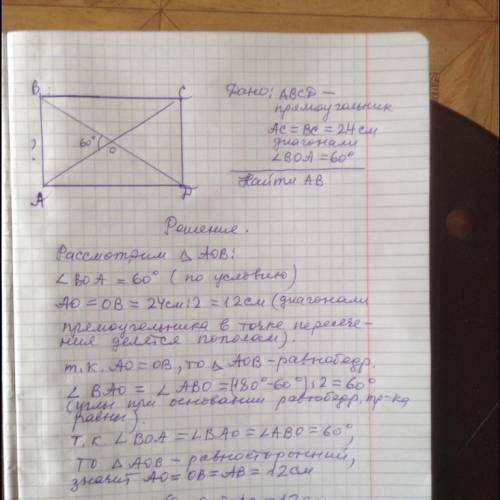 B
C
?
60°
O
A
D
Дано: ABCD –
прямоугольник
AC = BC = 24 см
диагонали
∠BOA = 60°
Найти AB
Решение.
Рассмотрим △ AOB:
∠ BOA = 60° (по условию)
AO = OB = 24см:2 = 12см (диагонали
прямоугольника в точке пересече-
ния делятся пополам).
т.к. AO = OB, то △ AOB – равнобедр.
∠ BAO = ∠ ABO = (180°-60°):2 = 60°
(углы при основании равнобедр. тр-ка
равны).
Т.к ∠ BOA = ∠BAO = ∠ABO = 60°,
то △ AOB – равносторонний,
значит AO = OB = AB = 12см